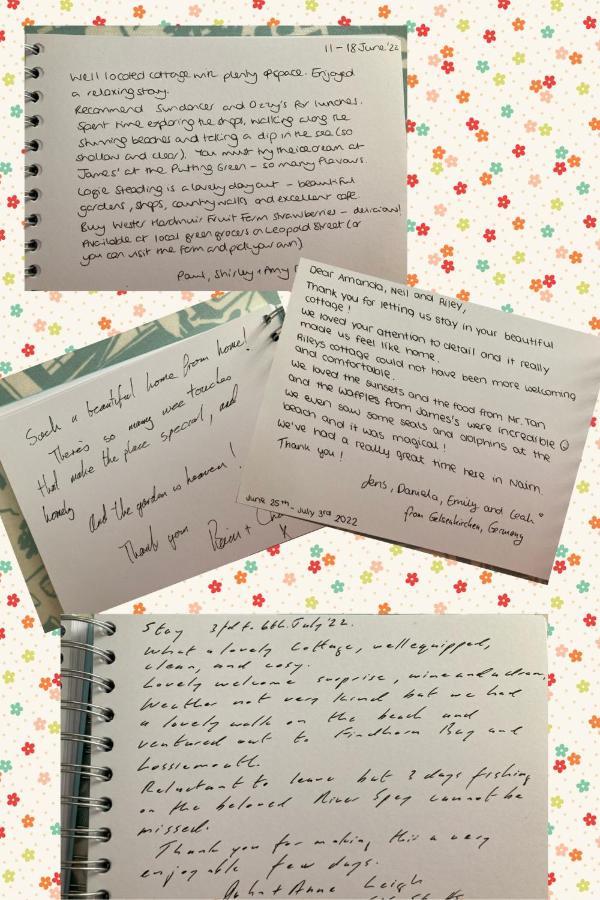 11 - 18 June '22
Well located cottage with plenty of space. Enjoyed
a relaxing stay.
Recommend Sundancer and Ozzy's for lunches.
Spent time exploring the shops, walking along the
stunning beaches and taking a dip in the sea (so
shallow and clear). You must try the icecream at
James' at the Putting Green - so many flavours.
Logie Steading is a lovely day out - beautiful
gardens, shops, country walks and excellent cafe
Buy Wester Hardmuir Fruit Farm strawberries - delicious!
Available at local green grocers on Leopold Street (or
you can visit the farm and pick your own)
Paul, Shirley + Amy
Dear Amanda, Neil and Riley,
Thank you for letting us stay in your beautiful
cottage!
We loved your attention to detail and it really
made us feel like home.
Rileys cottage could not have been more welcoming
and comfortable.
We loved the sunsets and the food from Mr. Tan
and the waffles from James's were incredible ☺
We even saw some seals and dolphins at the
beach and it was magical!
We've had a really great time here in Nairn.
Thank you!
Jens, Daniela, Emily and Leah
from Gelsenkirchen, Germany
June 25th - July 3rd 2022
Such a beautiful home from home!
There's so many wee touches
that make the place special, and
homely
and the garden is heaven!
Thank you
x
Stay 3rd to 6th July '22.
What a lovely cottage, well equipped,
clean, and cosy.
Lovely welcome surprise, wine and a dram,
Weather not very kind but we had
a lovely walk on the beach and
ventured out to Findhorn Bay and
Lossiemouth.
Reluctant to leave but 3 days fishing
on the beloved River Spey cannot be
missed.
Thank you for making this a very
enjoyable few days.
John + Anne Leigh